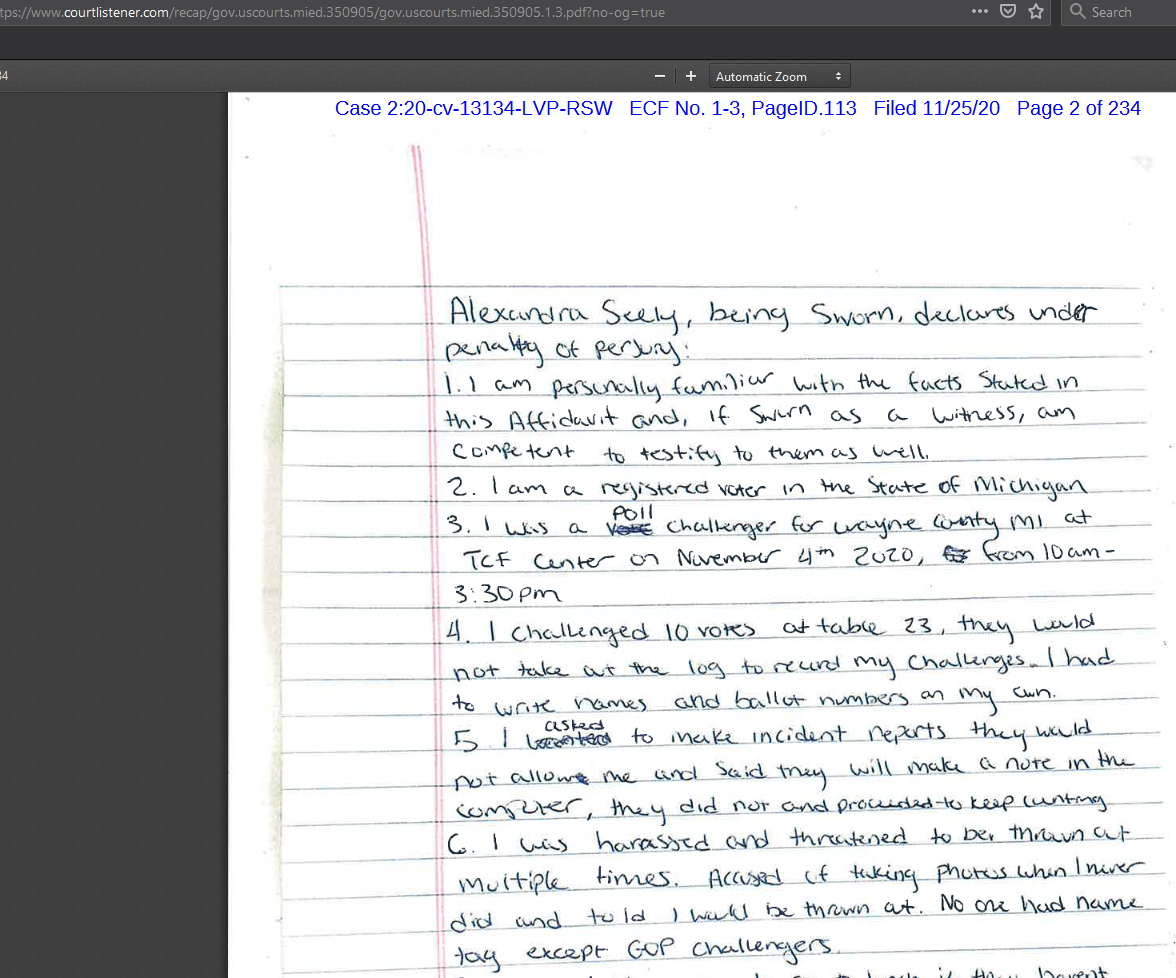 tps://www.courtlistener.com/recap/gov.uscourts.mied.350905/gov.uscourts.mied.350905.1.3.pdf?no-og=true
Search
34
Automatic Zoom
Case 2:20-cv-13134-LVP-RSW ECF No. 1-3, PageID.113 Filed 11/25/20 Page 2 of 234
Alexandra Seely, being Sworn, declares under
penalty of perjury:
1. I am personally familiar with the facts Stated in
this Affidavit and, if Sworn as a witness, am
competent to testify to them as well.
2. I am a registered voter in the State of Michigan
poll
3. I was a challenger for wayne county MI at
TCF Center on November 4th 2020, from 10am-
3:30pm
4. I challenged 10 votes at table 23, they would
not take out the log to record my challenges. I had
to write names and ballot numbers on my own.
asked
5. I to make incident reports they would
not allow me and said they will make a note in the
computer, they did not and proceeded to keep counting
6. I was harassed and threatened to be thrown out
multiple times. Accused of taking photos when I never
did and told I would be thrown out. No one had name
tag except GOP challengers.